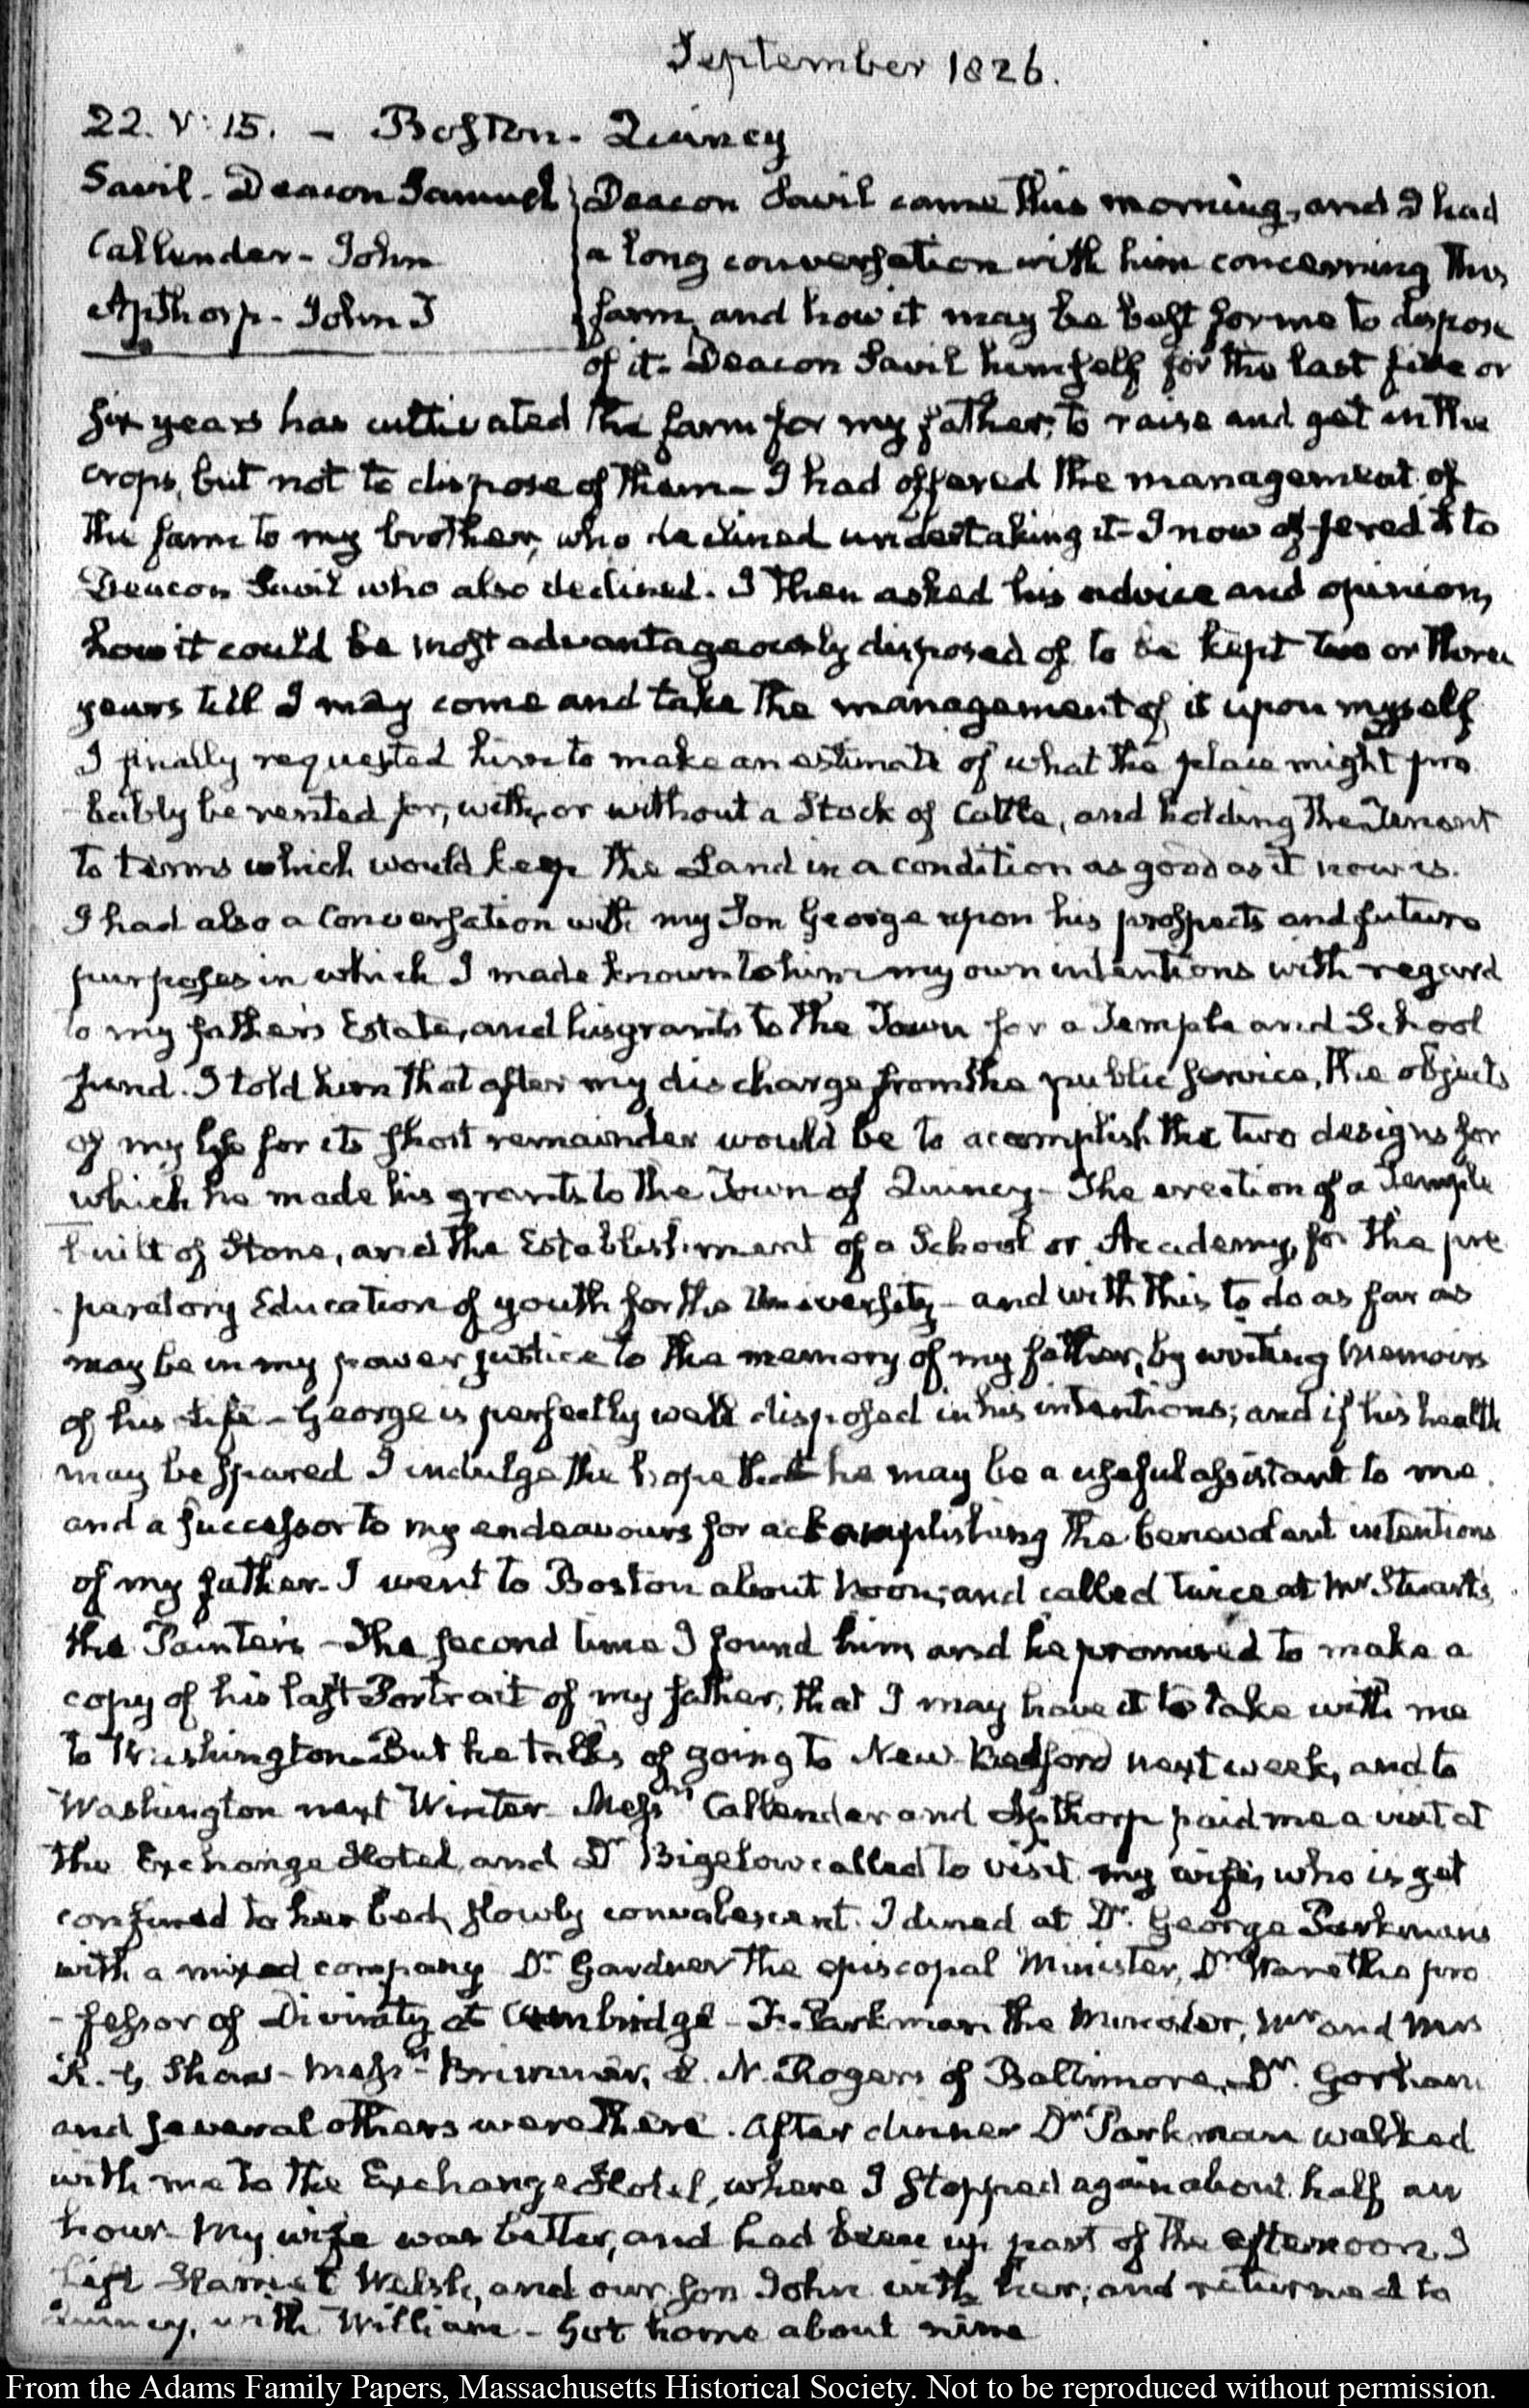 September 1826.
22. V: 15. – Boston. Quincy
Savil - Deacon Samuel
Callender - John
Apthorp - John T
Deacon Savil came this morning, and I had
a long conversation with him concerning this
farm, and how it may be best for me to dispose
of it. Deacon Savil himself for the last five or
six years has cultivated the farm for my father, to raise and get in the
crops, but not to dispose of them – I had offered the management of
the farm to my brother, who declined undertaking it – I now offered it to
Deacon Savil who also declined. I then asked his advice and opinion,
how it could be most advantageously disposed of to be kept two or three
years till I may come and take the management of it upon myself
I finally requested him to make an estimate of what the place might pro
-bably be rented for, with, or without a Stock of Cattle, and holding the Tenant
to terms which would keep the Land in a condition as good as it now is.
I had also a Conversation with my Son George upon his prospects and future
purposes in which I made known to him my own intentions with regard
to my father's Estate, and his grants to the Town for a Temple and School
fund. I told him that after my discharge from the public service, the objects
of my life for its short remainder would be to accomplish the two designs for
which he made his grants to the Town of Quincy – The erection of a Temple
built of Stone, and the Establishment of a School or Academy, for the pre
-paratory Education of youth for the University – and with this to do as far as
may be in my power justice to the memory of my father, by writing Memoirs
of his Life – George is perfectly well disposed in his intentions; and if his health
may be spared I indulge the hope that he may be a useful assistant to me
and a successor to my endeavours for accomplishing the benevolent intentions
of my father. I went to Boston about Noon; and called twice at Mr Stuart's
the Painter's – The second time I found him, and he promised to make a
copy of his last Portrait of my father, that I may have it to take with me
to Washington. But he talks of going to New-Bedford next week, and to
Washington next Winter. Messrs Callender and Apthorp paid me a visit at
the Exchange Hotel, and Dr Bigelow called to visit my wife, who is yet
confined to her bed, slowly convalescent. I dined at Dr. George Parkman's
with a mixed company Dr Gardner the episcopal Minister, Dr Ware the pro
-fessor of Divinity at Cambridge – F. Parkman the Minister, Mr and Mrs
R. G. Shaw – Messrs Brimmer, L. N. Rogers of Baltimore, Dr. Gorham
and several others were there. After dinner Dr Parkman walked
with me to the Exchange Hotel, where I stopped again about half an
hour. My wife was better, and had been up part of the afternoon. I
left Harriet Welsh, and our son John with her; and returned to
Quincy, with William – Got home about nine
From the Adams Family Papers, Massachusetts Historical Society. Not to be reproduced without permission.